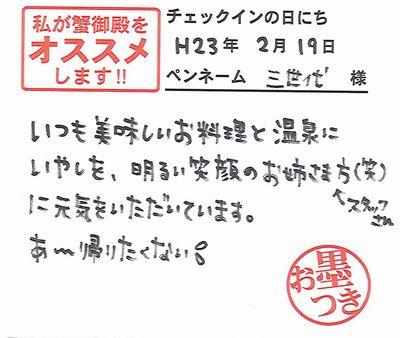 私が蟹御殿を
オススメ
します!!
チェックインの日にち
H23年 2月 19日
ペンネーム 三世代 様
いつも美味しいお料理と温泉に
いやしを、明るい笑顔のお姉さま方(笑)
←スタッフさん
に元気をいただいています。
あ〜帰りたくない!
お墨つき